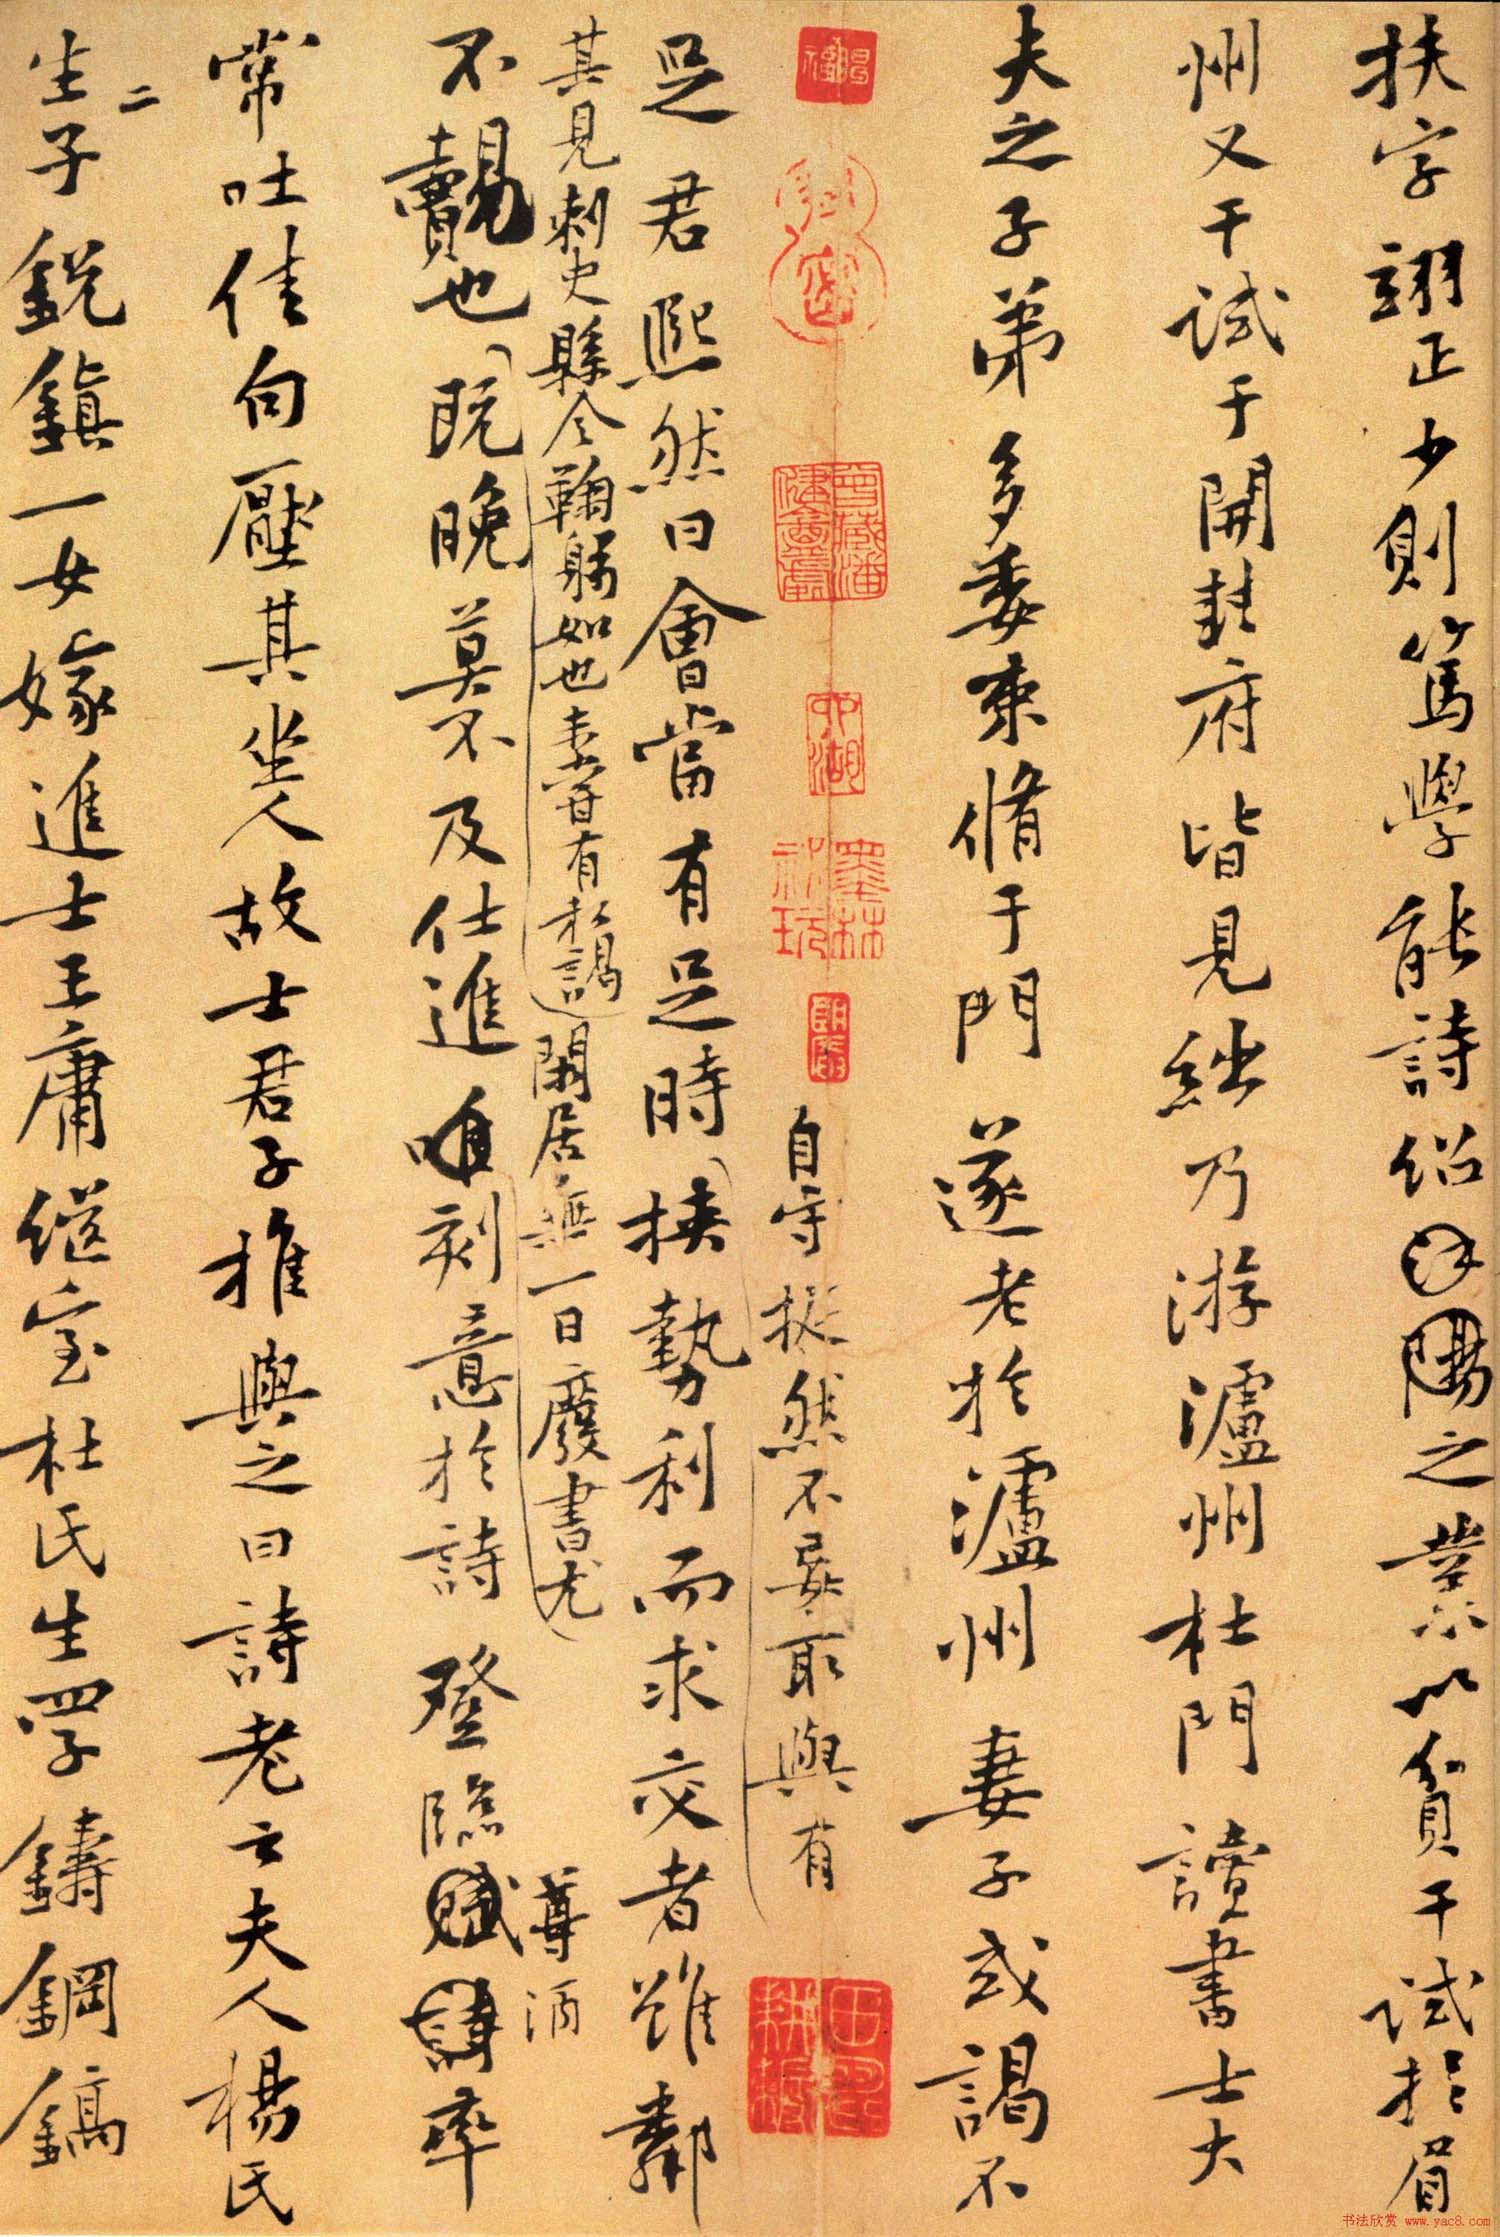 扶字翊正少則篤學能詩紹之業以貧干試於眉
州又干試于開封府皆見絀乃游瀘州杜門讀書士大
夫之子弟多委束脩于門遂老於瀘州妻子或謁不
自守挺然不妄取與有
墨林祕玩
田疇耕耨
足君熙然曰會當有足時挾勢利而求交者雖鄰
其見刺史縣令鞠躬如也未嘗有私謁閑居無一日廢書尤
尊酒
不覿也既晚莫不及仕進唯刻意於詩登臨賦詩率
常吐佳句壓其坐人故士君子推與之曰詩老云夫人楊氏
二
生子銳鎮一女嫁進士王庸继室杜氏生四子鑄鋼鎬
书法欣赏 www.yac8.com